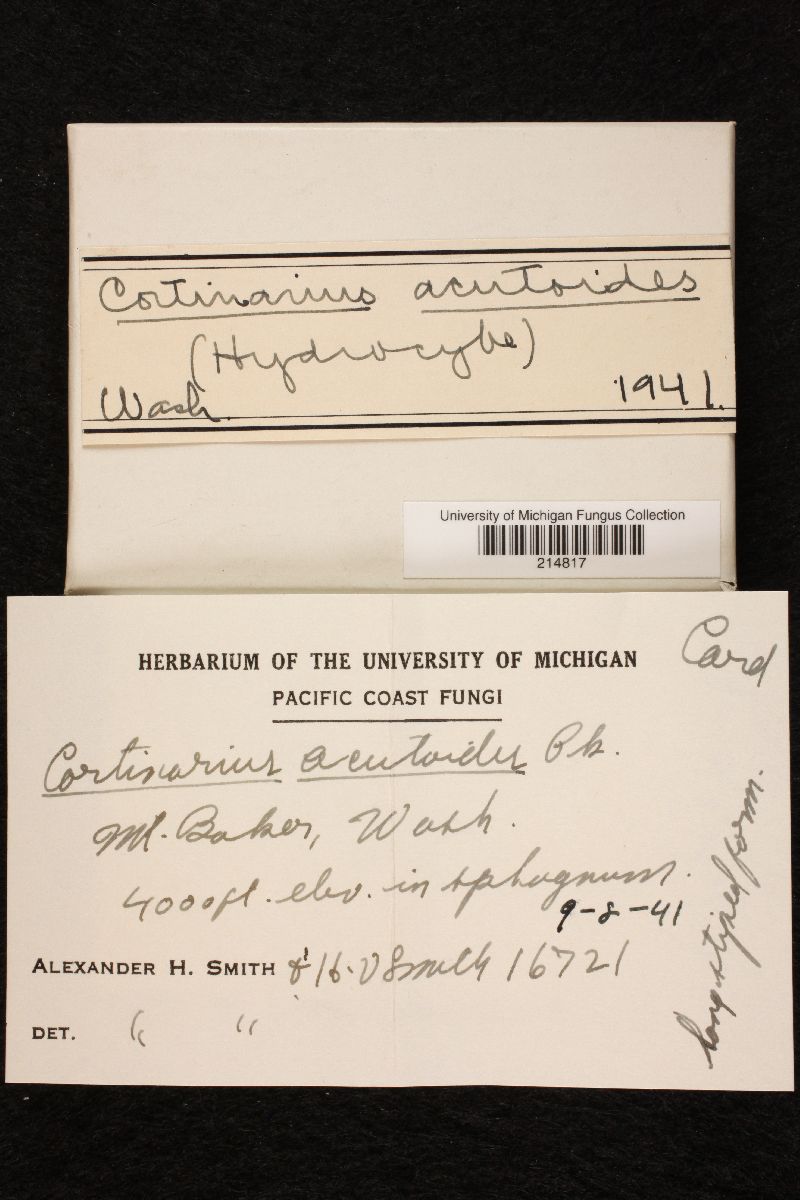 Cortinarius acutoides
(Hydrocybe)
Wash. 1941.
University of Michigan Fungus Collection
214817
Card
HERBARIUM OF THE UNIVERSITY OF MICHIGAN
PACIFIC COAST FUNGI
Cortinarius acutoides Pk.
Mt. Baker, Wash.
4000ft. elev. in sphagnum.
9-8-41
ALEXANDER H. SMITH & H.V Smith 16721
DET. " "
long-stiped form.